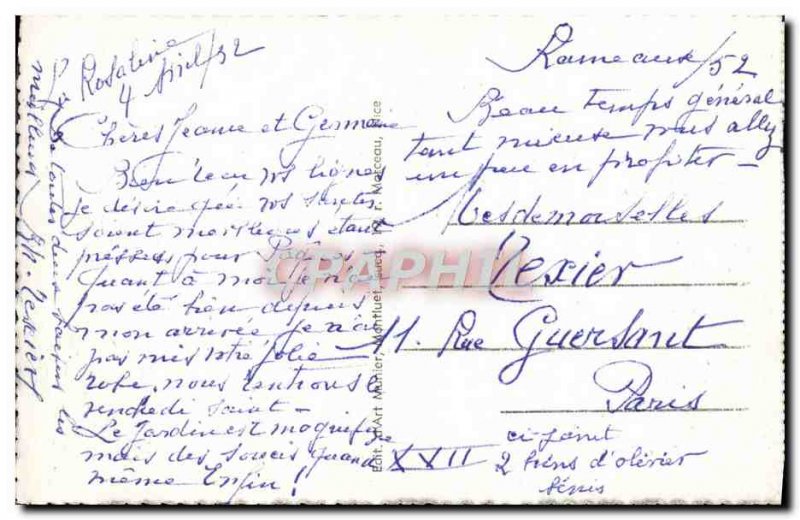 Rosaliné
4 Avril/52
Chères Jeanne et Germaine
Bien reçu vos lignes
je désire que vos santés
soient meilleures étant
pressées pour Pâques -
Quant à moi je n'ai
pas été bien depuis
mon arrivée je n'ai
pas mis 1 très jolie
robe. nous rentrons le
vendredi saint -
Le jardin est magnifique
mais des soucis quand
même Enfin !!
de toutes deux recevez les
meilleurs
Texier
Edit. d'Art Munier, Montluet, Succ., 12, r. Marceau, Nice
CPAPHIL
Rameaux/52
Beau temps général
tant mieux vous allez
un peu en profiter -
Mesdemoiselles
Texier
11. Rue Guersant
Paris
XVII
ci-joint
2 brins d'olivier
bénis